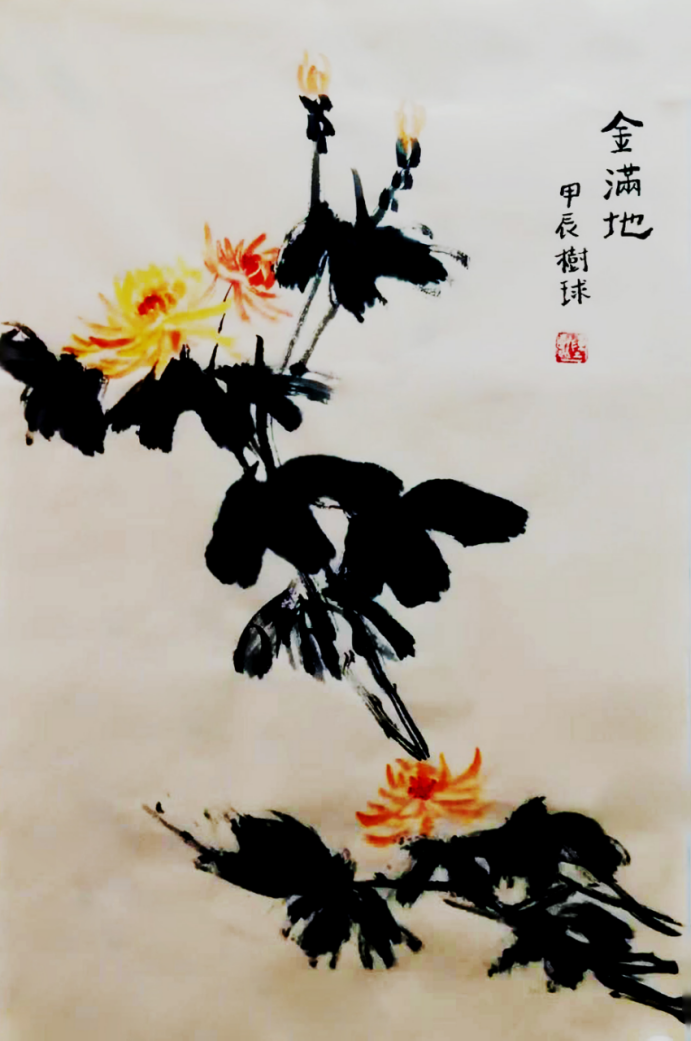 金滿地
甲辰樹球